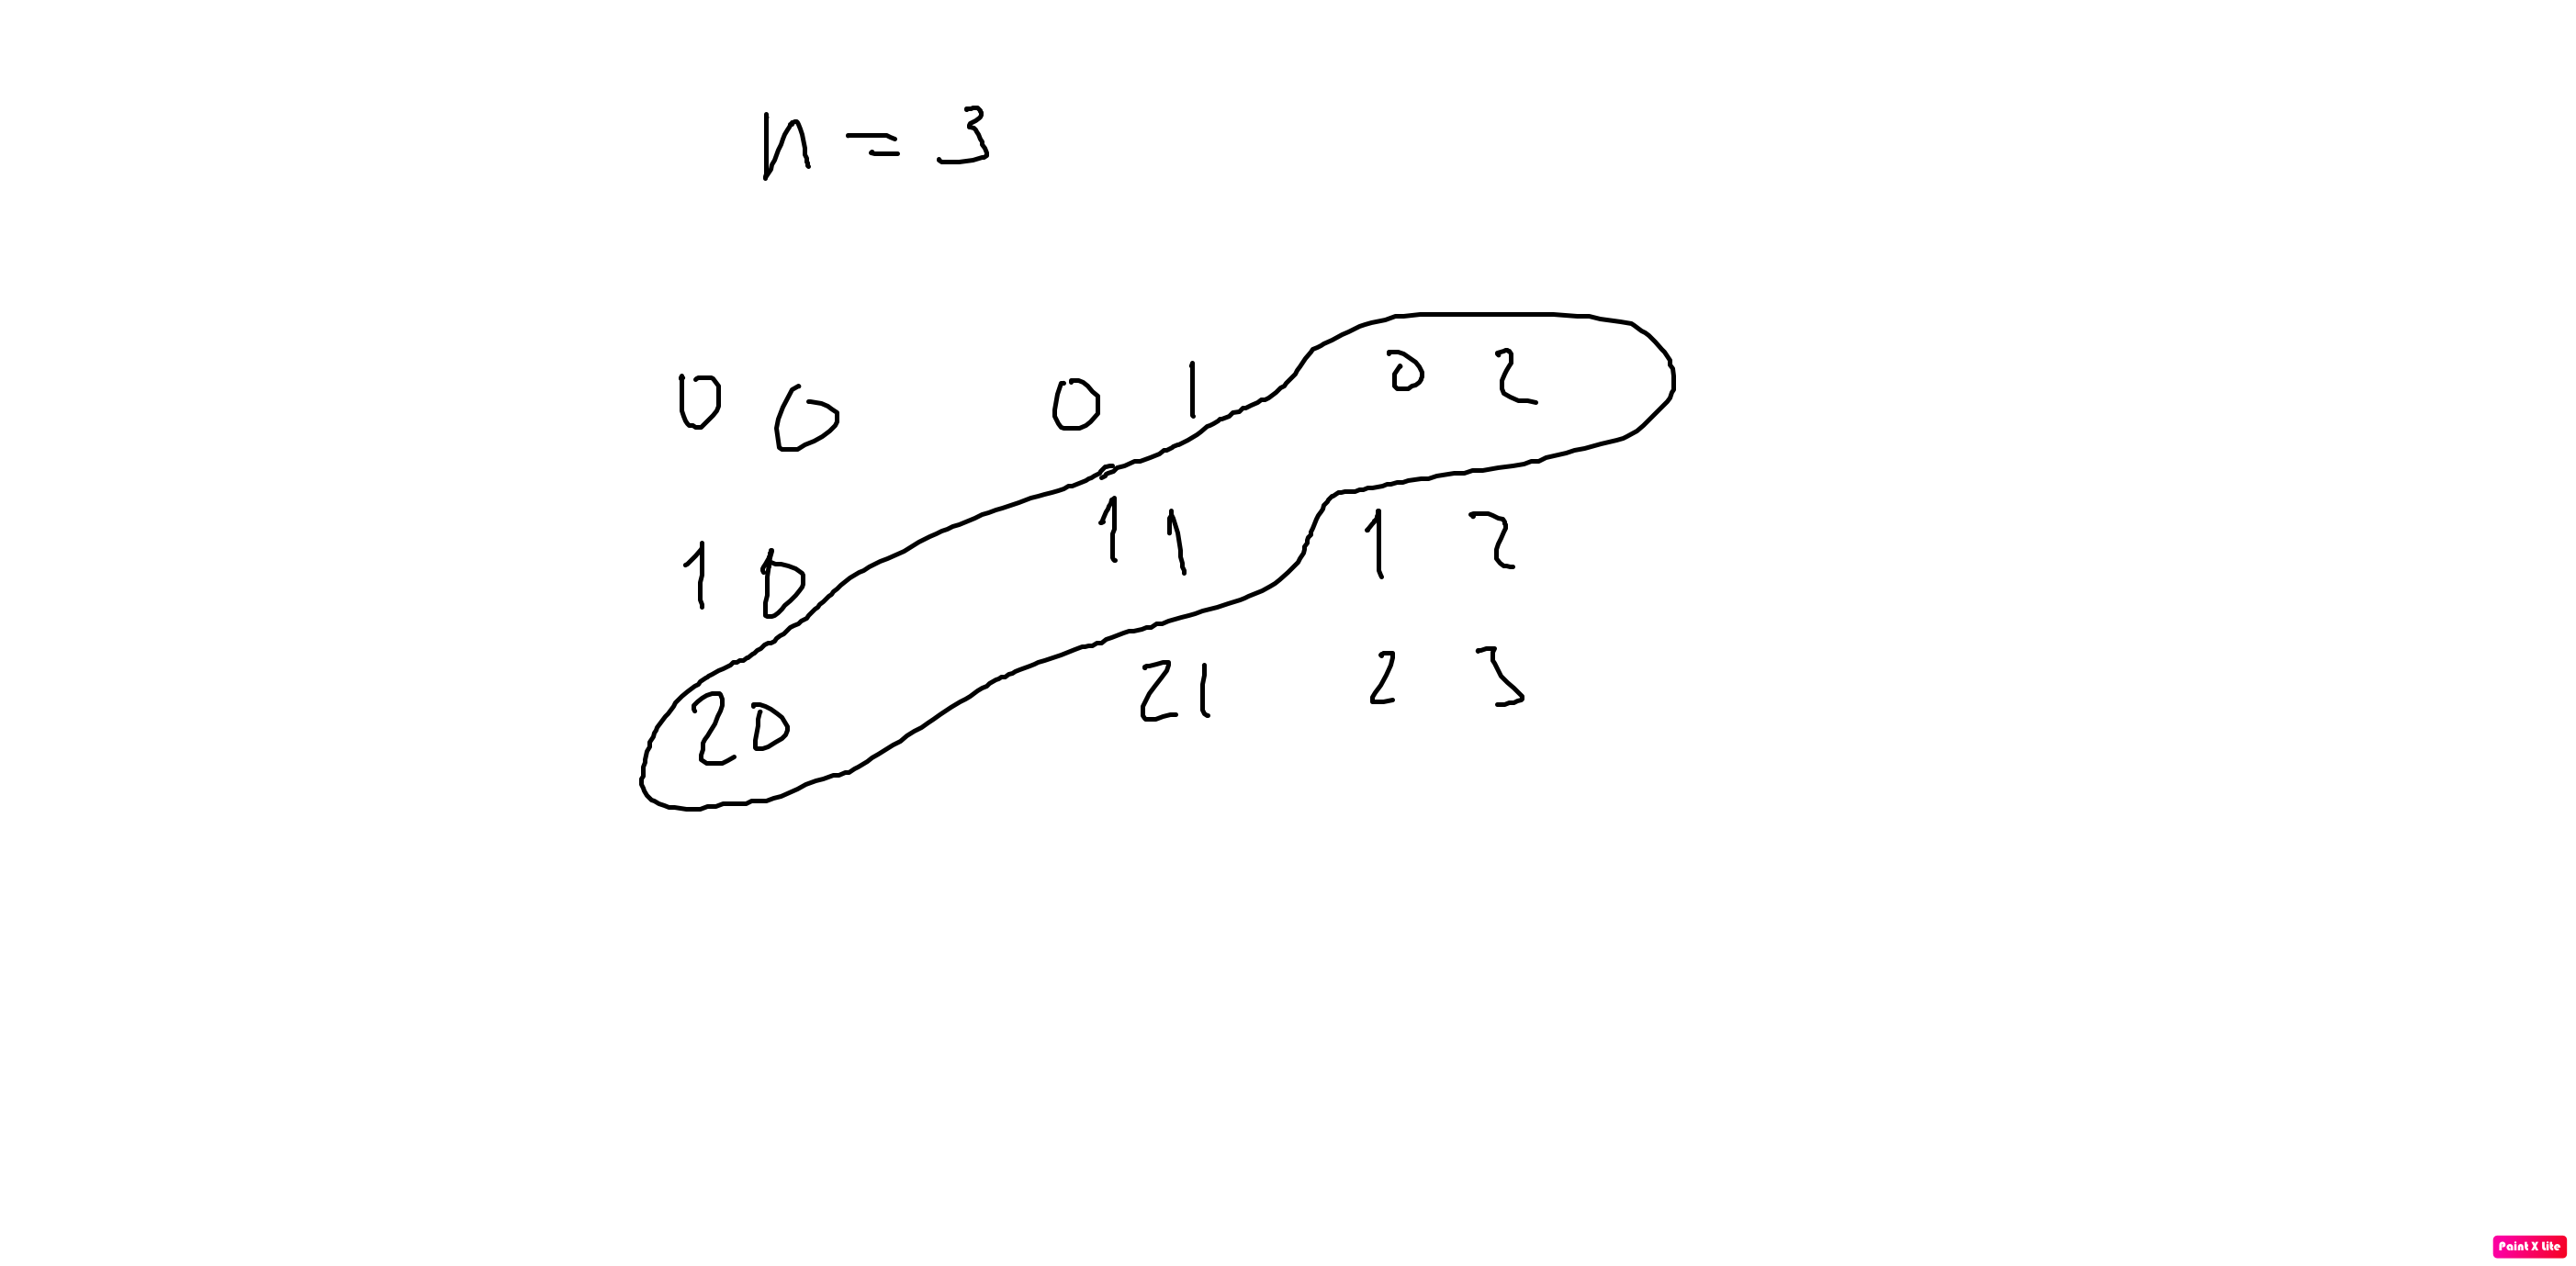 n = 3
0 0 0 1 0 2
1 0 1 1 1 2
2 0 2 1 2 3
Paint X Lite